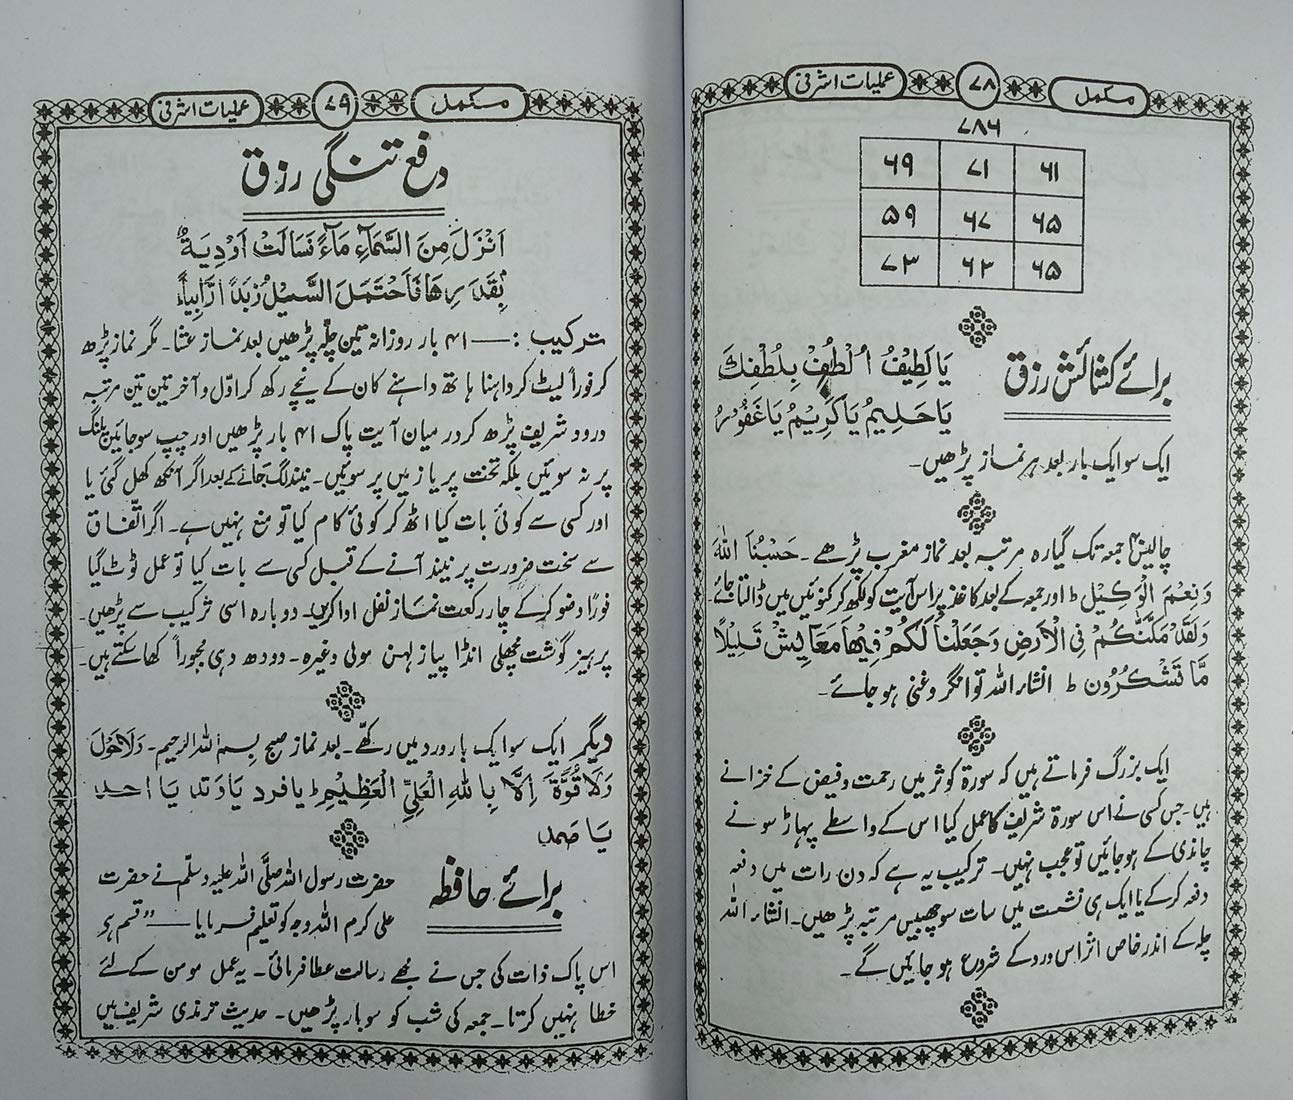 مکمل ۷۸ عملیات اشرفی
۷۸۶
۶۹ ۷۱ ۶۱
۵۹ ۶۷ ۶۵
۷۳ ۶۳ ۶۵
برائے کشائش رزق
یَا لَطِیْفُ اُلْطُفْ بِلُطْفِكَ
یَا حَلِیْمُ یَا کَرِیْمُ یَا غَفُوْرُ
ایک سو ایک بار بعد ہر نماز پڑھیں۔
چالیس جمعہ تک گیارہ مرتبہ بعد نماز مغرب پڑھے۔ حَسْبُنَا اللہُ
وَنِعْمَ الْوَکِیْل ط اور جمعہ کے بعد کاغذ پر اس آیت کو لکھ کر کنوئیں میں ڈالتا جائے۔
وَلَقَدْ مَکَّنّٰکُمْ فِی الْاَرْضِ وَجَعَلْنَا لَکُمْ فِیْهَا مَعَایِشْ قَلِیْلًا
مَّا تَشْکُرُوْن ط انشاء اللہ توانگر و غنی ہو جائے۔
ایک بزرگ فرماتے ہیں کہ سورۃ کوثر میں رحمت و فیض کے خزانے
ہیں۔ جس کسی نے اس سورۃ شریف کا عمل کیا اس کے واسطے پہاڑ سونے
چاندی کے ہو جائیں تو عجب نہیں۔ ترکیب یہ ہے کہ دن رات میں دفعہ
دفعہ کر کے یا ایک ہی نشست میں سات سو چھبیس مرتبہ پڑھیں۔ انشاء اللہ
چلہ کے اندر خاص اثر اس ورد کے شروع ہو جائیں گے۔
مکمل ۷۹ عملیات اشرفی
دفع تنگی رزق
اَنْزَلَ مِنَ السَّمَآءِ مَآءً فَسَالَتْ اَوْدِیَةٌ
بِقَدَرِهَا فَاَحْتَمَلَ السَّیْلُ زَبَدًا رَّابِیاً
ترکیب :— ۴۱ بار روزانہ تین چلّہ پڑھیں بعد نماز عشا۔ مگر نماز پڑھ
کر فوراً لیٹ کر داہنا ہاتھ داہنے کان کے نیچے رکھ کر اوّل و آخر تین تین مرتبہ
درود شریف پڑھ کر درمیان آیت پاک ۴۱ بار پڑھیں اور چپ سو جائیں پلنگ
پر نہ سوئیں بلکہ تخت پر یا زمیں پر سوئیں۔ نیند لگ جانے کے بعد اگر آنکھ کھل گئی یا
اور کسی سے کوئی بات کیا اٹھ کر کوئی کام کیا تو منع نہیں ہے۔ اگر اتّفاق
سے سخت ضرورت پر نیند آنے کے قبل کسی سے بات کیا تو عمل ٹوٹ گیا
فوراً وضو کر کے چار رکعت نماز نفل ادا کریں۔ دوبارہ اسی ترکیب سے پڑھیں۔
پرہیز گوشت مچھلی انڈا پیاز لہسن مولی وغیرہ۔ دودھ دہی مجبوراً کھا سکتے ہیں۔
دیگر ایک سو ایک بار ورد میں رکھے۔ بعد نماز صبح بسم اللہ الرحیم۔ وَلَاحَوْلَ
وَلَا قُوَّةَ اِلَّا بِاللهِ الْعَلِیِّ الْعَظِیْمِ ط یا فرد یا وتد یا احد
یا صمد
برائے حافظہ
حضرت رسول اللہ صلّی اللہ علیہ وسلّم نے حضرت
علی کرم اللہ وجہ کو تعلیم فرمایا — “قسم ہے
اس پاک ذات کی جس نے مجھے رسالت عطا فرمائی۔ یہ عمل مومن کے لئے
خطا نہیں کرتا۔ جمعہ کی شب کو سو بار پڑھیں۔ حدیث ترمذی شریف میں